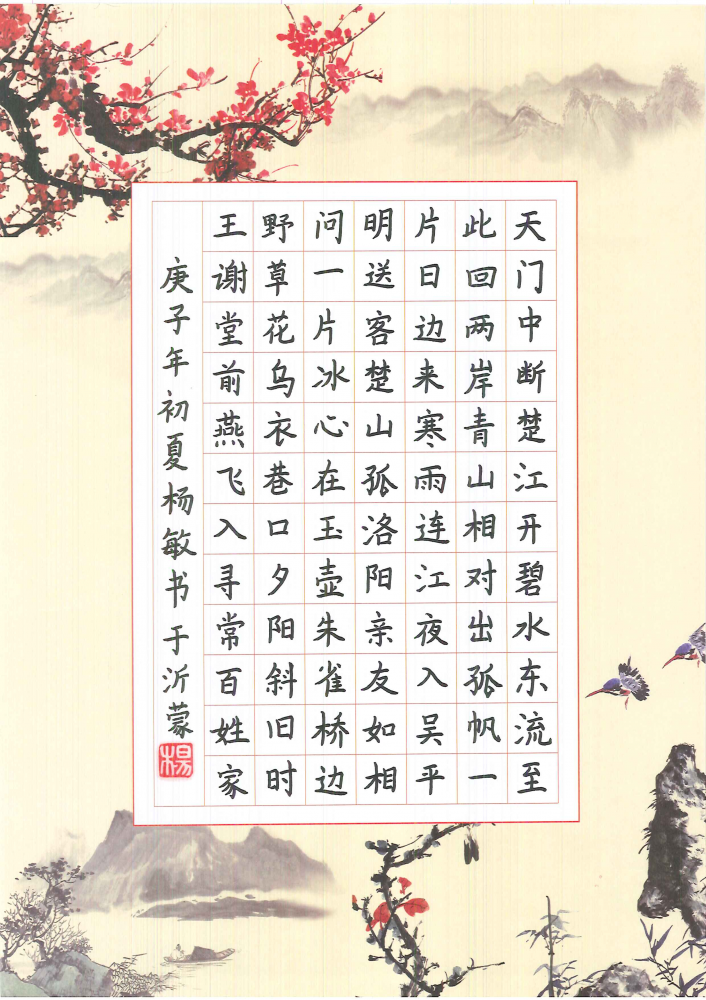 天门中断楚江开碧水东流至
此回两岸青山相对出孤帆一
片日边来寒雨连江夜入吴平
明送客楚山孤洛阳亲友如相
问一片冰心在玉壶朱雀桥边
野草花乌衣巷口夕阳斜旧时
王谢堂前燕飞入寻常百姓家
庚子年初夏杨敏书于沂蒙
楊